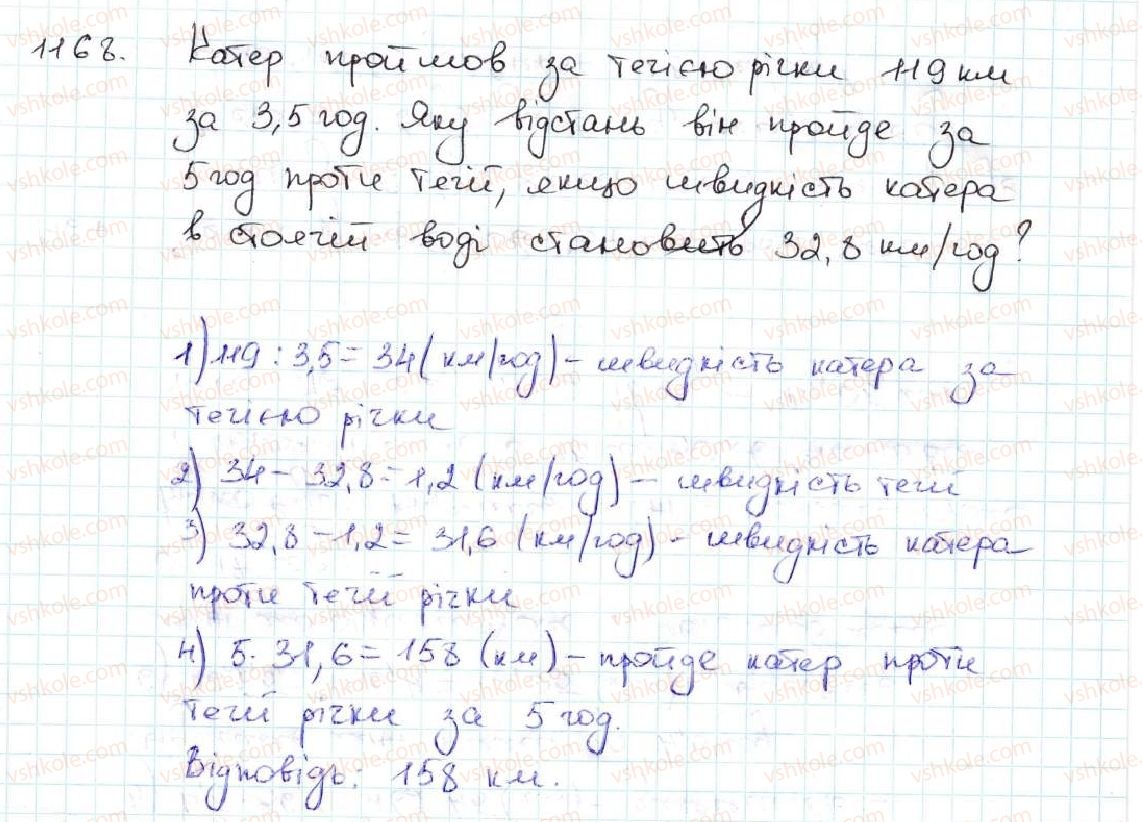 1168. Катер пройшов за течією річки 119 км
за 3,5 год. Яку відстань він пройде за
5 год проти течії, якщо швидкість катера
в стоячій воді становить 32,8 км/год?
1) 119 : 3,5 = 34 (км/год) – швидкість катера за
течією річки
2) 34 – 32,8 = 1,2 (км/год) – швидкість течії
3) 32,8 – 1,2 = 31,6 (км/год) – швидкість катера
проти течії річки
4) 5 · 31,6 = 158 (км) – пройде катер проти
течії річки за 5 год.
Відповідь: 158 км.